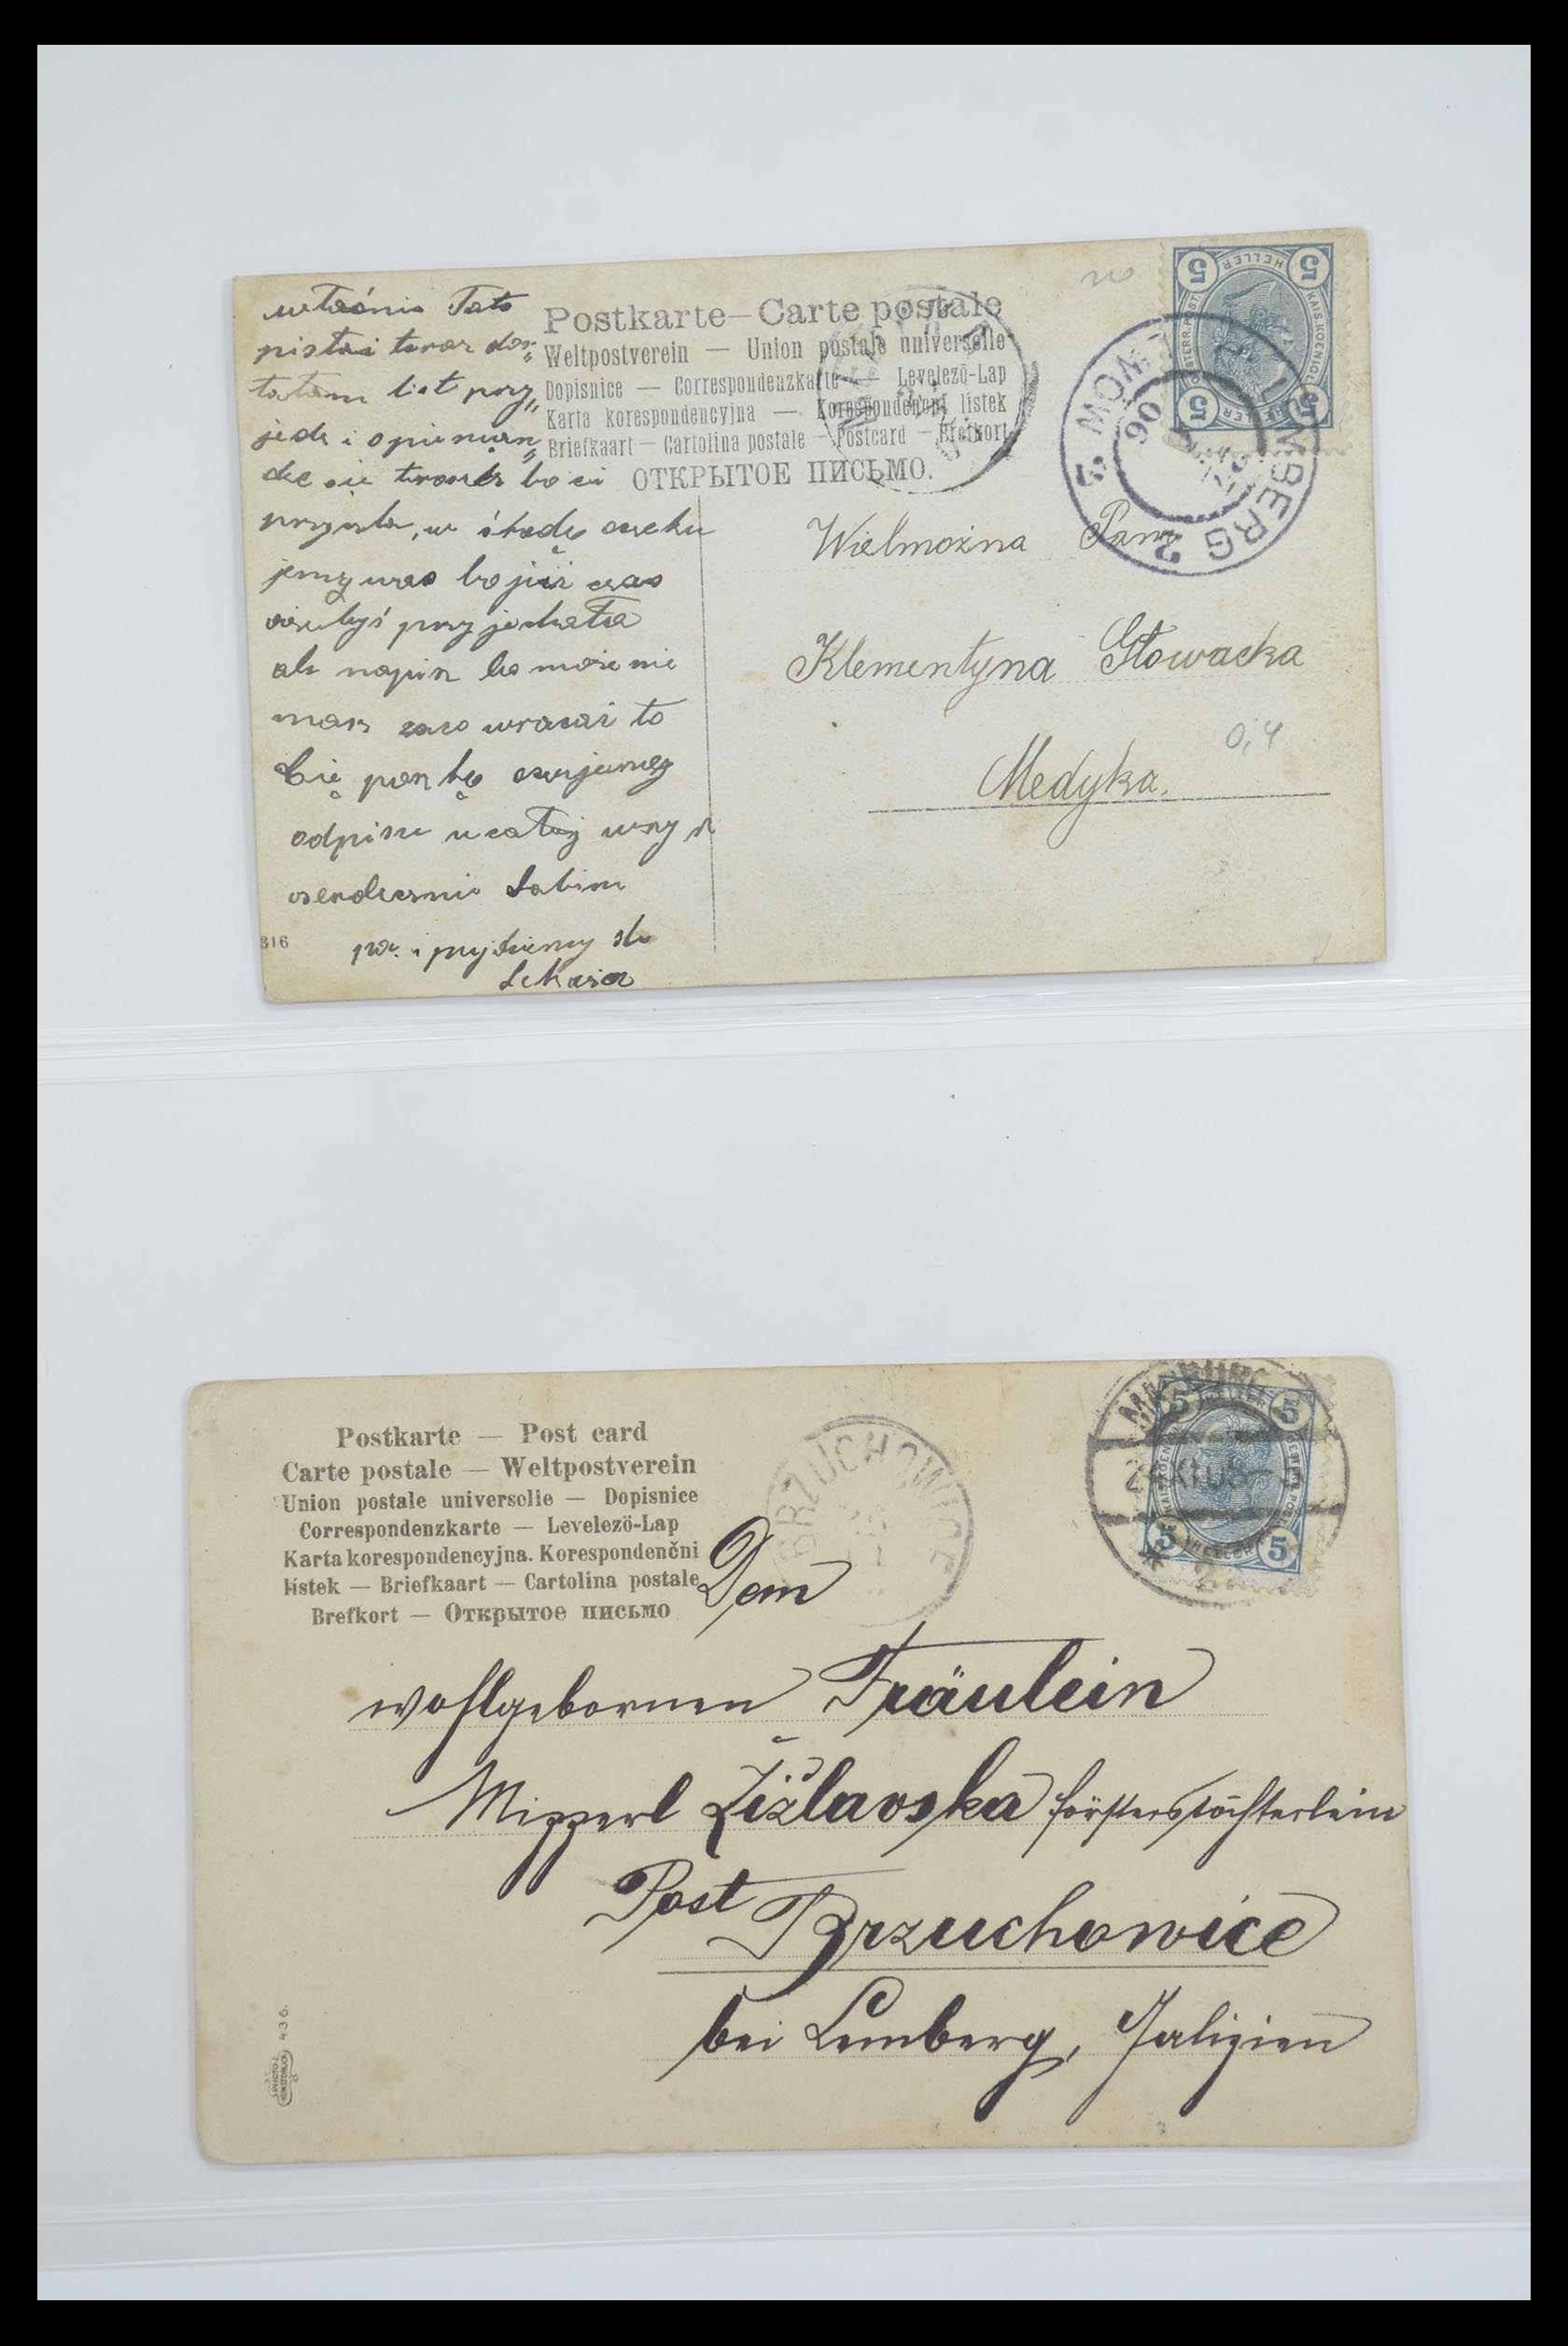 właśnie Tato
pista i teraz dos„
tałam list przy„
jedz i o pienią„
dze się
przyszle, w środę oczeku
jemy was bo już czas
żebyś przyjechała
ale napisz bo może nie
masz zaco wracać to
Cię
odpisu ucałuj wszys
serdecznie Sabina
po. i pujdziemy do
Lekarza
316
Postkarte—Carte postale
Weltpostverein — Union postale universelle
Dopisnice — Correspondenzkarte — Levelező-Lap
Karta korespondencyjna — Korespondenční lístek
Briefkaart — Cartolina postale — Postcard — Brefkort
ОТКРЫТОЕ ПИСЬМО.
5 HELLER 5
KAIS. KOENIGL. OESTERR. POST
5 HELLER 5
LEMBERG 2
06
Wielmożna Pani
Klementyna Głowacka
0,4
Medyka.
Postkarte — Post card
Carte postale — Weltpostverein
Union postale universelle — Dopisnice
Correspondenzkarte — Levelező-Lap
Karta korespondencyjna. Korespondenčni
lístek — Briefkaart — Cartolina postale
Brefkort — Открытое письмо
BRZUCHOWICE
5 HELLER 5
KAIS. KOENIGL. OESTERR. POST
5 HELLER 5
XI.05
Dem
wohlgebornen Fräulein
Mizzerl Žižlavska Försterstöchterlein
Post Brzuchowice
bei Lemberg, Galizien
436.
PHOTO-
KUNSTDRUCK